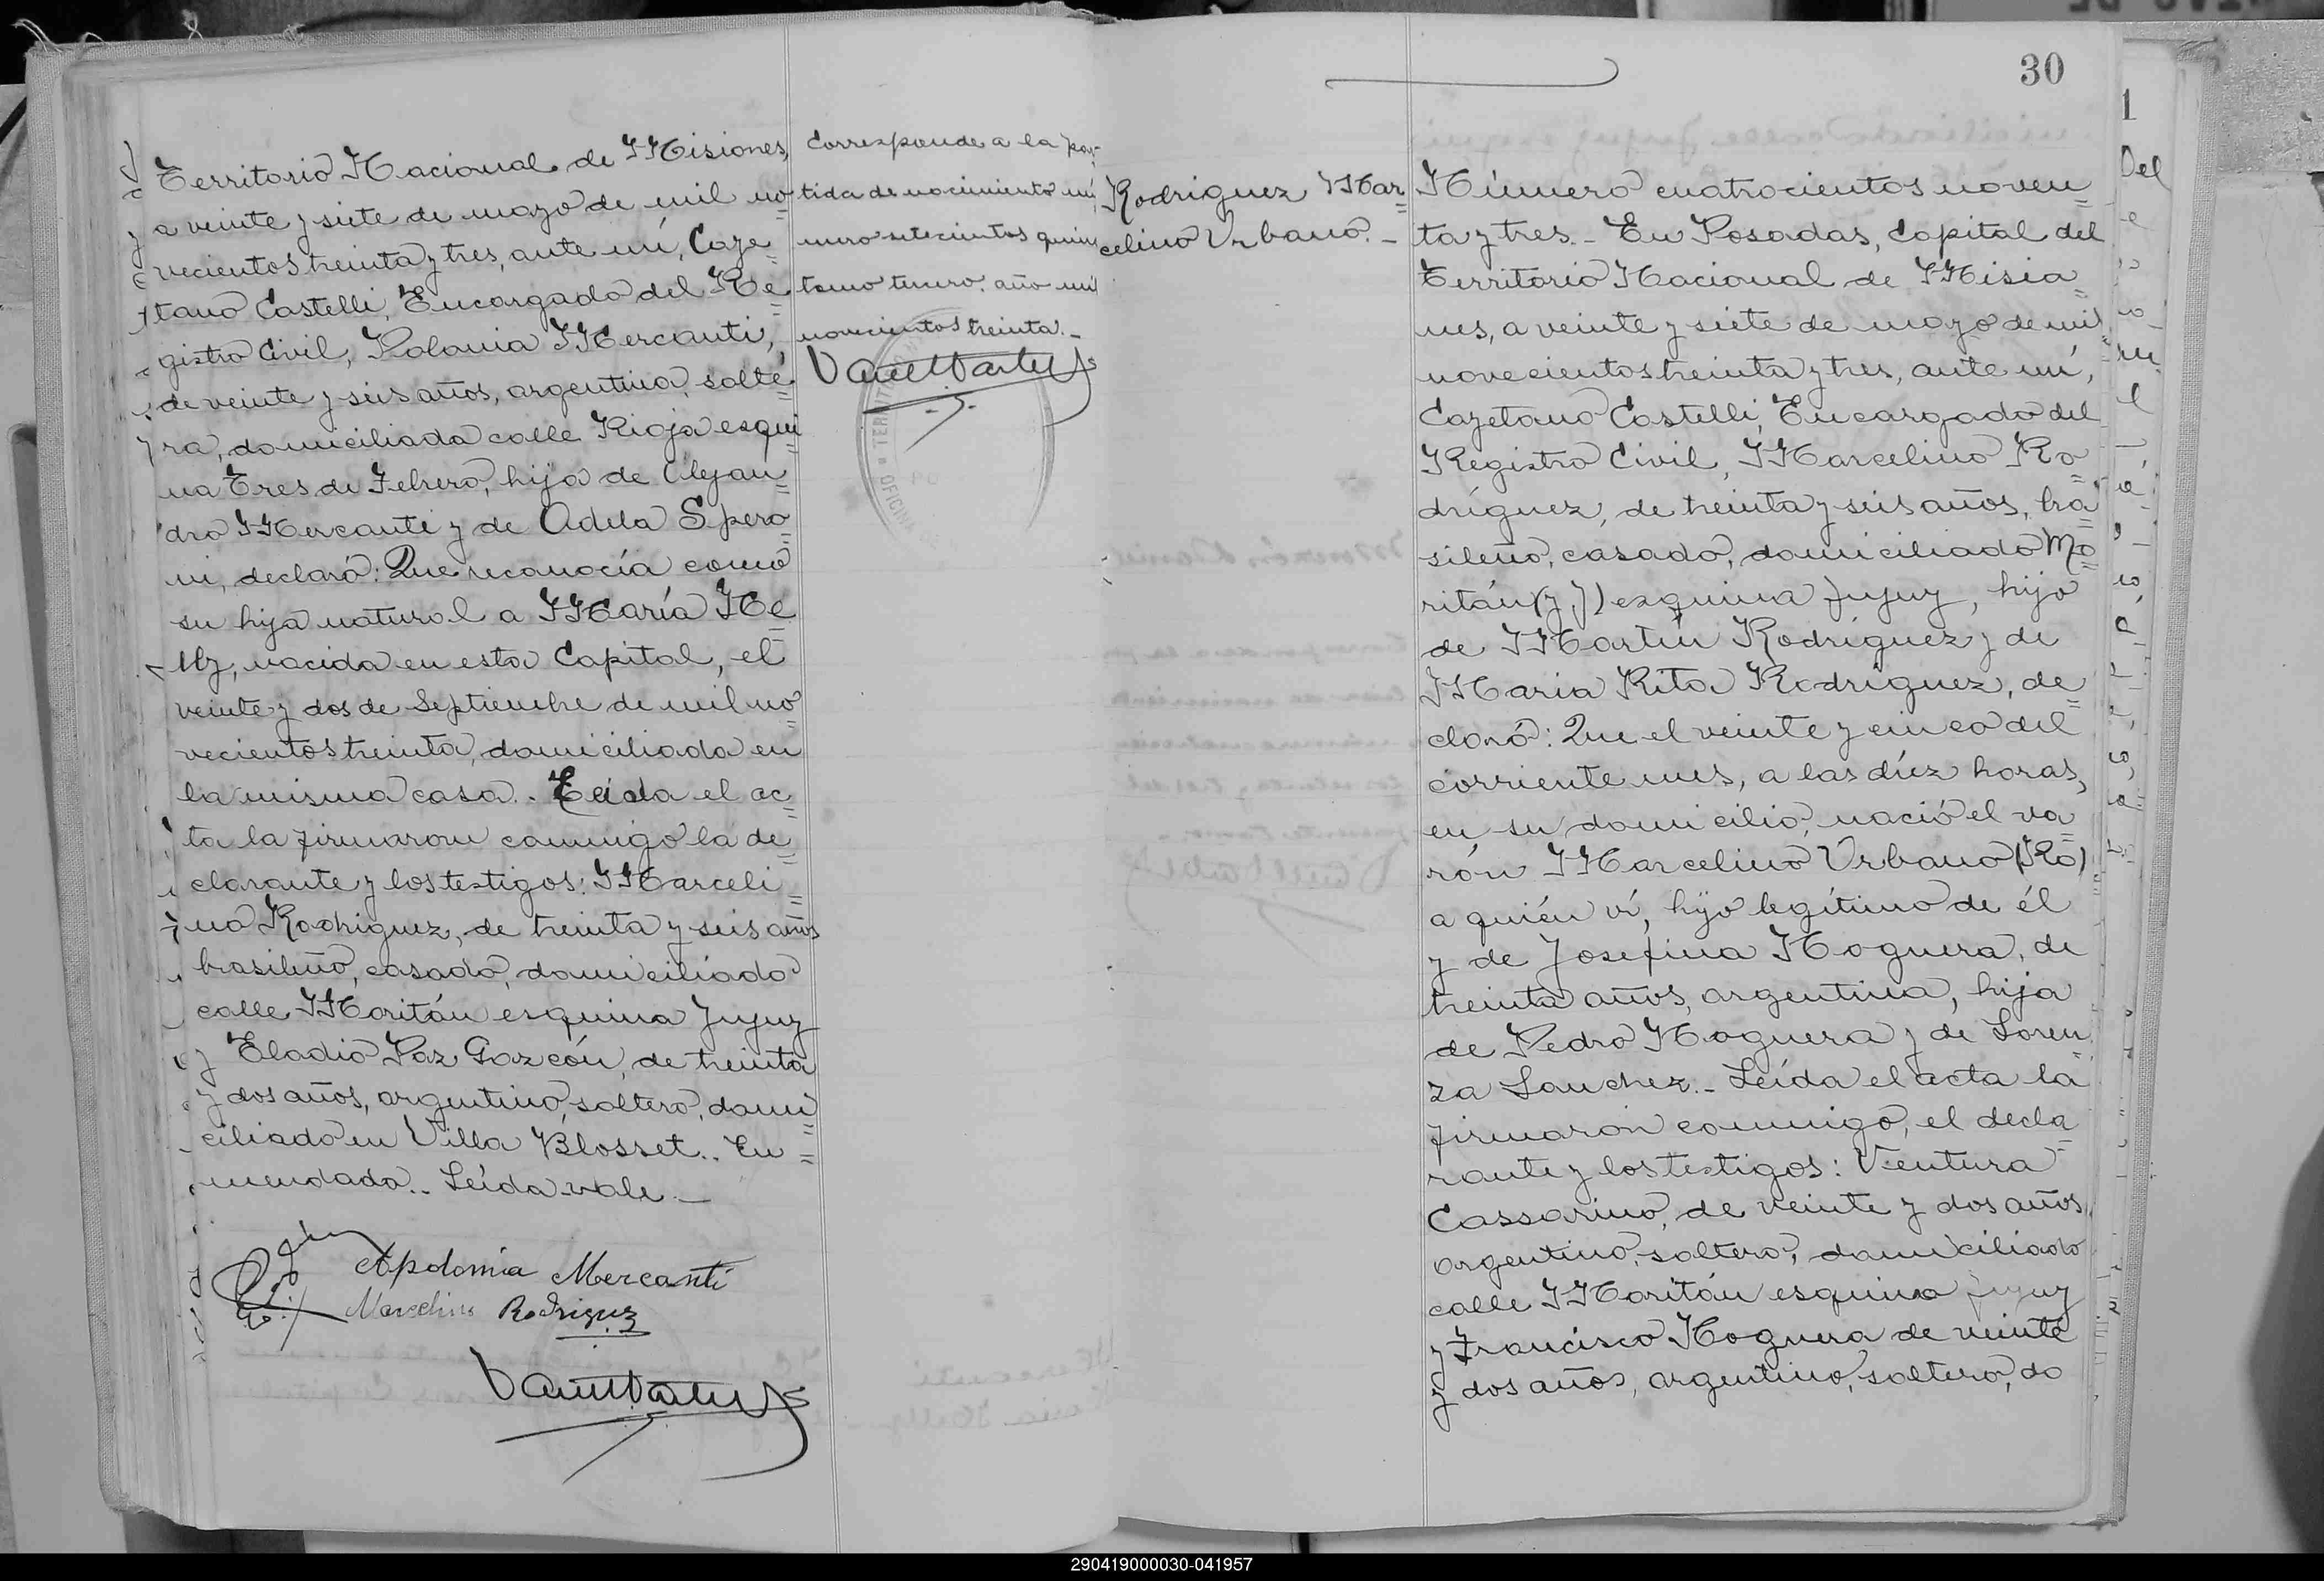 Territorio Nacional de Misiones,
a veinte y siete de mayo de mil no=
vecientos treinta y tres, ante mí, Caye=
tano Castelli, Encargado del Re=
gistro Civil, Polonia Mercanti,
de veinte y seis años, argentina, solte=
ra, domiciliada calle Rioja esqui=
na Tres de Febrero, hija de Alejan=
dro Mercanti y de Adela Spero=
ni, declaró: Que reconocía como
su hija natural a María Ne=
lly, nacida en esta Capital, el
veinte y dos de Septiembre de mil no=
vecientos treinta, domiciliada en
la misma casa.- Leida el ac=
ta la firmaron conmigo la de=
clarante y los testigos: Marceli=
no Rodriguez, de treinta y seis años
brasileño, casado, domiciliado
calle Moritán esquina Jujuy
y Eladio Paz Gazcón, de treinta
y dos años, argentino, soltero, domi=
ciliado en Villa Blosset.. En=
mendado.. Leída vale.-
Apolonia Mercanti
Marcelino Rodriguez
Corresponde a la par-
tida de nacimiento nú
mero setecientos quin
tomo tercero, año mil
novecientos treinta.-
30
Rodriguez Mar=
celino Urbano.-
Número cuatrocientos noven=
ta y tres.- En Posadas, Capital del
Territorio Nacional de Misio=
nes, a veinte y siete de mayo de mil
novecientos treinta y tres, ante mí,
Cayetano Castelli, Encargado del
Registro Civil, Marcelino Ro=
dríguez, de treinta y seis años, bra=
sileño, casado, domiciliado Mo=
ritán (y J) esquina Jujuy, hijo
de Martín Rodríguez y de
Maria Rita Rodriguez, de=
claró: Que el veinte y cinco del
corriente mes, a las diez horas,
en su domicilio, nació el va=
rón Marcelino Urbano (Ro)
a quién ví, hijo legítimo de él
y de Josefina Noguera, de
treinta años, argentina, hija
de Pedro Noguera y de Loren=
za Sanchez.- Leída el acta la
firmaron conmigo, el decla=
rante y los testigos: Ventura
Cassarino, de veinte y dos años,
argentino, soltero, domiciliado
calle Moritán esquina Jujuy
y Francisco Noguera de veinte
y dos años, argentino, soltero, do
290419000030-041957